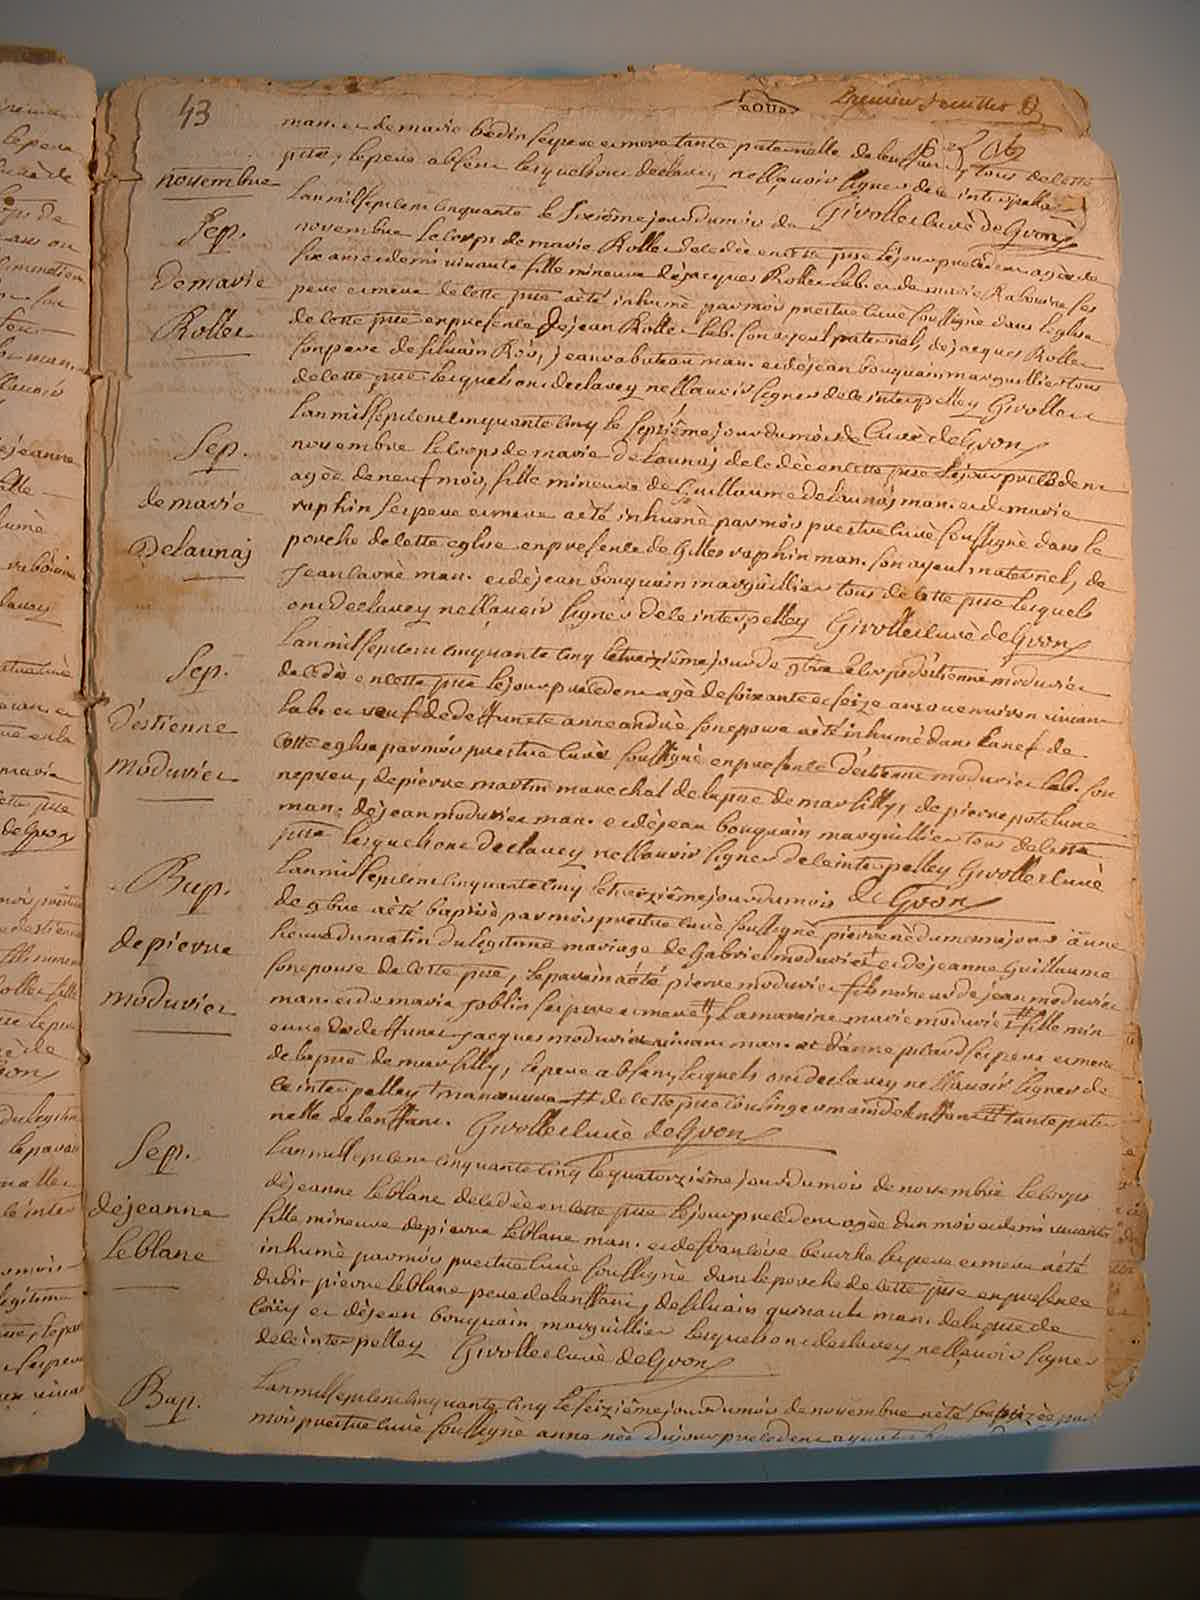 43
Premier feuillet
man. et de marie bodin ses pere et mere tante paternelle de tous de cette
psse, le pere absent lesquels ont declarez ne sçavoir signer de ce interpellez
Givollet curé de Gvon
novembre
Sep.
de marie
Rollet
Lan mil sept cent cinquante le sixième jour du mois de
novembre le corps de marie Rollet decedée en cette psse le jour precedent agée de
six ans et demi vivante fille mineure de jacques Rollet lab. et de marie Rabouine ses
pere et mere de cette psse a été inhumé par moi prestre curé soussigné dans l'eglise
de cette psse en presence de jean Rollet lab. son ayeul paternel, de jacques Rollet
son pere de silvain Roy, jean rabuteau man. et de jean bouquain marguillier tous
de cette psse lesquels ont declarez ne sçavoir signer de ce interpellez Givollet
curé de Gvon
Sep.
de marie
Delaunay
Lan mil sept cent cinquante cinq le septième jour du mois de
novembre le corps de marie delaunay decedée en cette psse le jour precedent
agée de neuf mois, fille mineure de Guillaume delaunay man. et de marie
raphin ses pere et mere a été inhumé par moi prestre curé soussigné dans le
porche de cette eglise en presence de Gilles raphin man. son ayeul maternel, de
jean lavrè man. et de jean bouquain marguillier tous de cette psse lesquels
ont declarez ne sçavoir signer de ce interpellez Givollet curé de Gvon
Sep.
d'estienne
moduvier
Lan mil sept cent cinquante cinq le treizième jour de 9bre le corps d'estienne moduvier
decedé en cette psse le jour precedent agé de soixante et seize ans ou environ vivant
lab. et veuf de deffuncte anne andrè son epouse a été inhumé dans la nef de
cette eglise par moi prestre curé soussigné en presence d'estienne moduvier lab. son
nepveu, de pierre martin marechal de la psse de marsilly, de pierre potelune
man. de jean moduvier man. et de jean bouquain marguillier tous de cette
psse lesquels ont declarez ne sçavoir signer de ce interpellez Givollet curé
de Gvon
Bap.
de pierre
moduvier
Lan mil sept cent cinquante cinq le treizième jour du mois
de 9bre a été baptisé par moi prestre curé soussigné pierre né du mesme jour à une
heure du matin du legitime mariage de Gabriel moduvier + et de jeanne Guillaume
son epouse de cette psse, le parain a été pierre moduvier fils mineur de jean moduvier
man. et de marie joblin ses pere et mere # La maraine marie moduvier # fille min
eure de deffunct jacques moduvier vivant man. et d'anne picard ses pere et mere
de la psse de marsilly, le pere absent, lesquels ont declarez ne sçavoir signer de
ce interpellez + manoeuvre # de cette psse cousin germain de l'enffant # tante pater
nelle de lenffant. Givollet curé de Gvon
Sep.
de jeanne
leblanc
Lan mil sept cent cinquante cinq le quatorzième jour du mois de novembre le corps
de jeanne leblanc decedée en cette psse le jour precedent agée d'un mois et demi vivante
fille mineure de pierre leblanc man. et de françoise beurche ses pere et mere a été
inhumé par moi prestre curé soussigné dans le porche de cette psse en presence
dudit pierre leblanc pere de lenffant, de silvain quinault man. de la psse de
et de jean bouquain marguillier lesquels ont declarez ne sçavoir signer
de ce interpellez Givollet curé de Gvon
Bap.
Lan mil sept cent cinquante cinq le seizième jour du mois de novembre a été baptizée par
moi prestre curé soussigné anne née du jour precedent